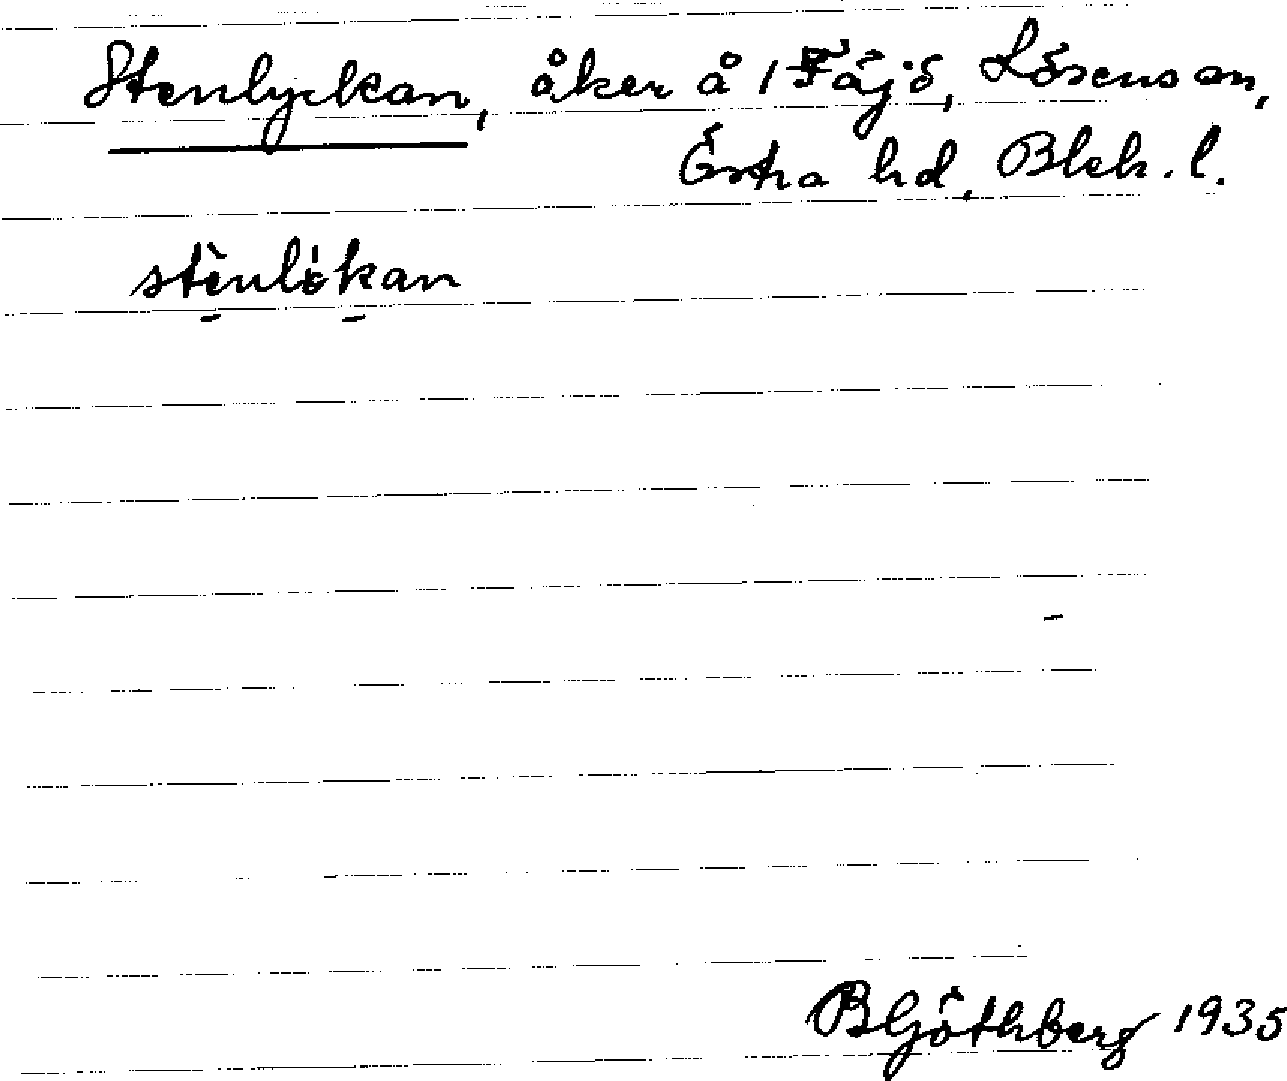 Stenlyckan, åker å 1 Fäjö, Lösens sn,
Östra hd, Blek. l.
stènlö́kan
B Göthberg 1935